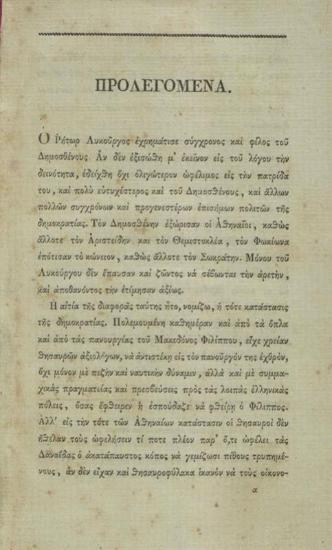 ΠΡΟΛΕΓΟΜΕΝΑ.
Ο Ῥήτωρ Λυκοῦργος ἐχρημάτισε σύγχρονος καὶ φίλος τοῦ
Δημοσθένους Ἂν δὲν ἐξισώθη μ' ἐκεῖνον εἰς τοῦ λόγου τὴν
δεινότητα, ἐδείχθη ὄχι ὀλιγώτερον ὠφέλιμος εἰς τὴν πατρίδα
του, καὶ πολὺ εὐτυχέστερος καὶ τοῦ Δημοσθένους, καὶ ἄλλων
πολλῶν συγχρόνων καὶ προγενεστέρων ἐπισήμων πολιτῶν τῆς
δημοκρατίας. Τὸν Δημοσθένην ἐξώρισαν οἱ Ἀθηναῖοι, καθὼς
ἄλλοτε τὸν Ἀριστείδην καὶ τὸν Θεμιστοκλέα, τὸν Φωκίωνα
ἐπότισαν τὸ κώνειον, καθὼς ἄλλοτε τὸν Σωκράτην. Μόνου τοῦ
Λυκούργου δὲν ἔπαυσαν καὶ ζῶντος νὰ σέβωνται τὴν ἀρετὴν,
καὶ ἀποθανόντος τὴν ἐτίμησαν ἀξίως.
Ἡ αἰτία τῆς διαφορᾶς ταύτης ἦτο, νομίζω, ἡ τότε κατάστασις
τῆς δημοκρατίας. Πολεμουμένη καθημέραν καὶ ἀπὸ τὰ ὅπλα
καὶ ἀπὸ τὰς πανουργίας τοῦ Μακεδόνος Φιλίππου, εἶχε χρείαν
θησαυρῶν ἀξιολόγων, νὰ ἀντιστέκῃ εἰς τὸν πανοῦργόν της ἐχθρὸν,
ὄχι μόνον μὲ πεζὴν καὶ ναυτικὴν δύναμιν, ἀλλὰ καὶ μὲ συμμα-
χικὰς πραγματείας καὶ πρεσβεύσεις πρὸς τὰς λοιπὰς ἑλληνικὰς
πόλεις, ὅσας ἔφθειρεν ἢ ἐσπούδαζε νὰ φθείρῃ ὁ Φίλιππος.
Ἀλλ' εἰς τὴν τότε τῶν Ἀθηναίων κατάστασιν οἱ θησαυροὶ δὲν
ἤθελαν τοὺς ὠφελήσειν τί ποτε πλέον παρ' ὅ,τι ὠφελεῖ τὰς
Δαναΐδας ὁ ἀκατάπαυστος κόπος νὰ γεμίζωσι πίθους τρυπημέ-
νους, ἂν δὲν εἶχαν καὶ θησαυροφύλακα ἱκανὸν νὰ τοὺς οἰκονο-
α